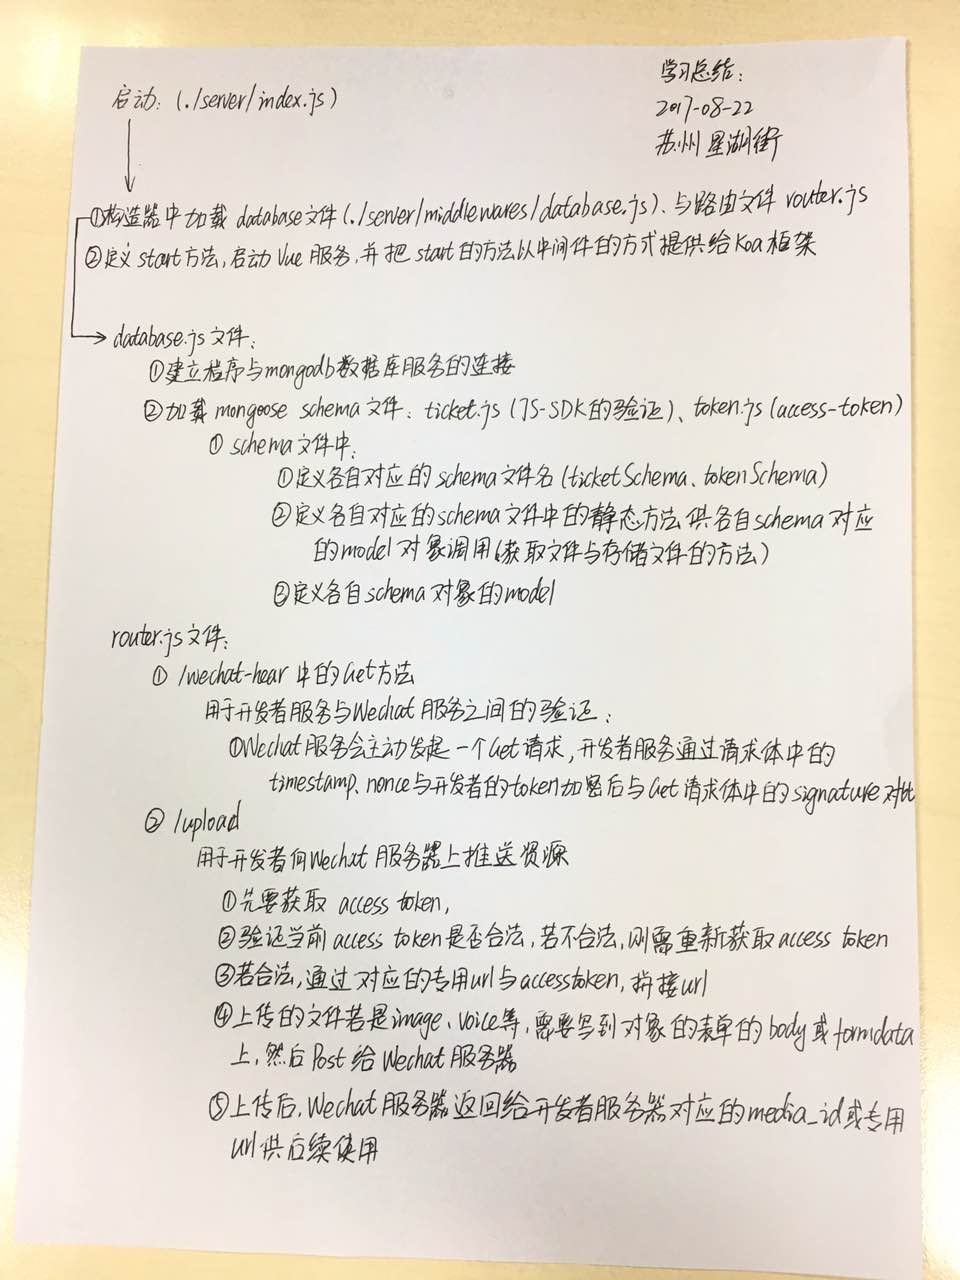 学习总结：
2017-08-22
苏州星湖街
启动：(./server/index.js)
①构造器中加载 database文件(./server/middlewares/database.js)、与路由文件 router.js
②定义 start方法，启动 Vue 服务，并把 start的方法以中间件的方式提供给Koa框架
database.js文件：
①建立程序与mongodb数据库服务的连接
②加载 mongoose schema文件：ticket.js (JS-SDK的验证)、token.js (access-token)
① schema文件中：
①定义各自对应的 schema文件名 (ticketSchema、tokenSchema)
②定义各自对应的schema文件中的静态方法供各自schema对应
的model对象调用(获取文件与存储文件的方法)
③定义各自schema对象的model
router.js文件：
① /wechat-hear 中的Get方法
用于开发者服务与Wechat服务之间的验证：
①Wechat服务会主动发起一个Get请求，开发者服务通过请求体中的
timestamp、nonce与开发者的token加密后与Get请求体中的signature对比
② /upload
用于开发者向Wechat服务器上推送资源
①先要获取 access token，
②验证当前access token是否合法，若不合法，则需重新获取access token
③若合法，通过对应的专用url与accesstoken，拼接url
④上传的文件若是image、voice等，需要写到对象的表单的body或formdata
上，然后Post给Wechat服务器
⑤上传后，Wechat服务器返回给开发者服务器对应的media_id或专用
url供后续使用